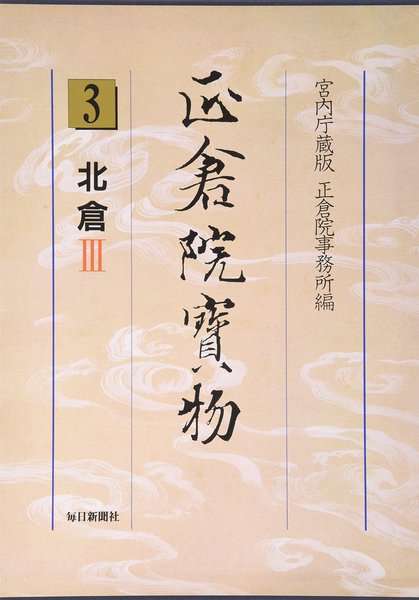 宮内庁蔵版 正倉院事務所編
正倉院寶物
3
北倉
III
毎日新聞社